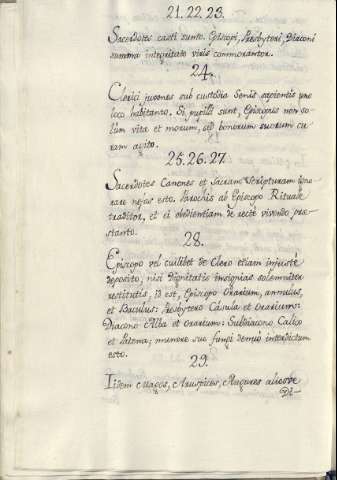 21. 22. 23.
Sacerdotes casti sunto. Episcopi, Presbyteri, Diaconi
summa integritate viris commorantor.
24.
Clerici juvenes sub custodia Senis sapientis uno
loco habitanto. Si pupilli sunt, Episcopus non so-
lum vita et morum, sed bonorum suorum cu-
ram agito.
25. 26. 27.
Sacerdotes Canones et Sacram Scripturam igno-
rare nefas esto. Parochis ab Episcopo Rituale
traditor, et ei obedientiam de recte vivendo præ-
stanto.
28.
Episcopo vel cuilibet de Clero etiam injuste
deposito, nisi Dignitatis insignias solemniter
restitutis, id est, Episcopo Orarium, annulus,
et Baculus: Presbytero Casula et Orarium:
Diacono Alba et Orarium: Subdiacono Calix
et Patena; munere suo fungi denuo interdictum
esto.
29.
Iidem Magos, Aruspices, Augures aliosve
Di-